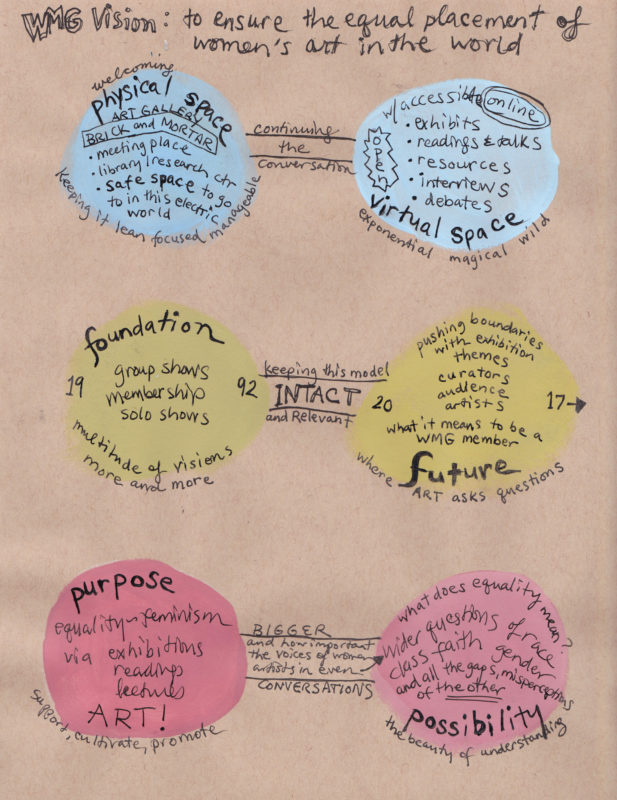 WMG Vision: to ensure the equal placement of
women's art in the world
welcoming
physical space
ART GALLERY
BRICK and MORTAR
• meeting place
• library/research ctr
• safe space to go
to in this electric
world
keeping it lean focused manageable
continuing
the
conversation
w/accessible online
• exhibits
• readings & talks
• resources
• interviews
• debates
virtual space
exponential magical wild
foundation
group shows
membership
solo shows
19 92
multitude of visions
more and more
keeping this model
INTACT
and Relevant
pushing boundaries
with exhibition
themes
curators
audience
artists
20 17
what it means to be a
WMG member
future
where ART asks questions
purpose
equality~feminism
via exhibitions
readings
lectures
ART!
support, cultivate, promote
BIGGER
and how important
the voices of women
artists in even
CONVERSATIONS
what does equality mean?
wider questions of race
class faith gender
and all the gaps, misperceptions
of the other
possibility
the beauty of understanding